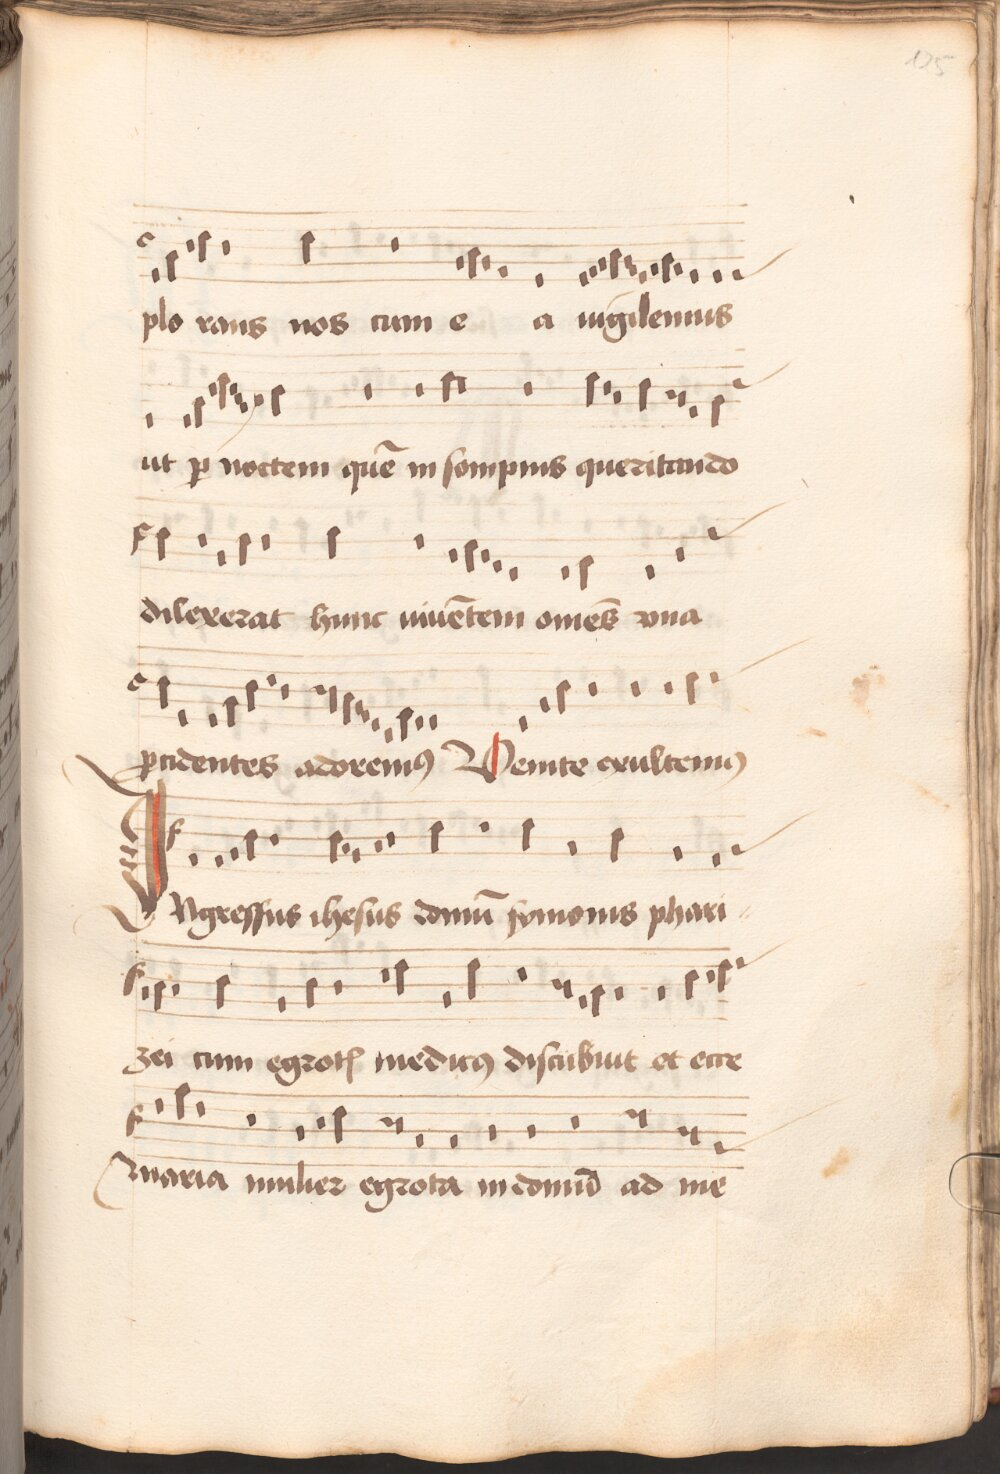 125
plo rans nos cum e a uigilemus
ut ꝑ noctem quē in sompnis queritando
dilexerat hunc uiuētem om̄es vna
ꝓcidentes adoremꝰ Venite exultemꝰ
INgressus ihesus domū symonis phari
zei cum egrotꝭ medicꝰ discubuit et ecce
maria mulier egrota in domū ad me